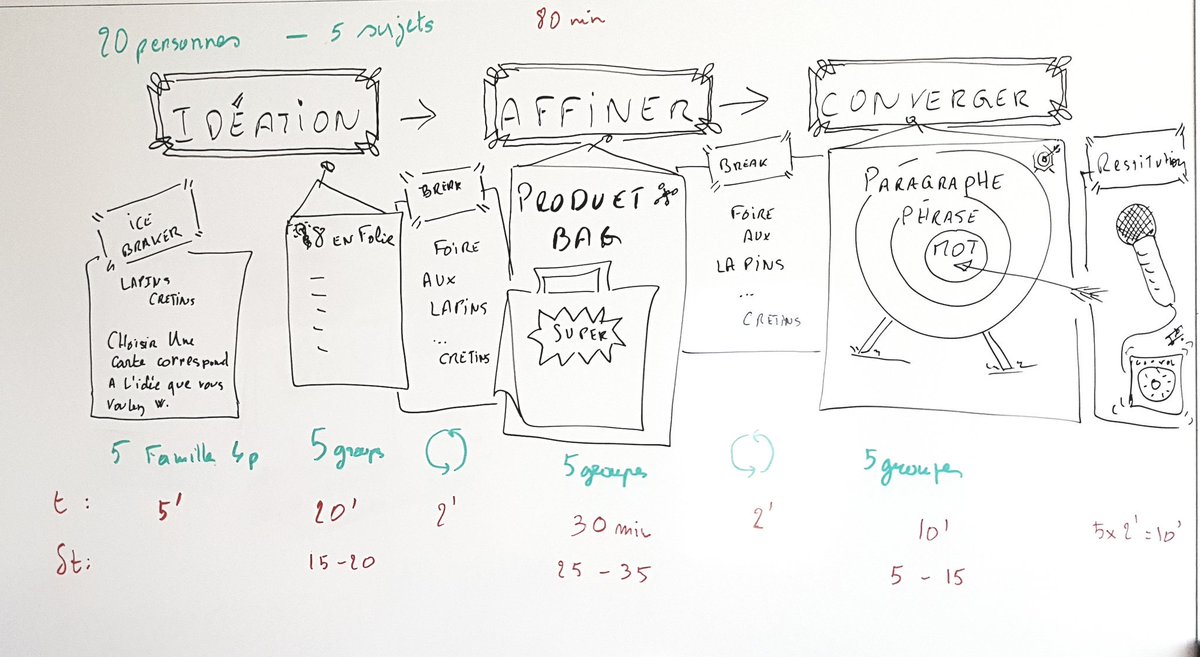 20 personnes — 5 sujets
80 min
IDÉATION → AFFINER → CONVERGER
ICE
BRAKER
LAPINS
CRETINS
CHOISIR UNE
CARTE CORRESPOND
A L'IDÉE QUE VOUS
VOULEZ
8 EN FOLIE
BREAK
FOIRE
AUX
LAPINS
...
CRETINS
PRODUET
BAG
SUPER
BREAK
FOIRE
AUX
LAPINS
...
CRETINS
PARAGRAPHE
PHRASE
MOT
RESTITUTION
5 Famille 4p
5 groups
5 groupes
5 groupes
t : 5' 20' 2' 30 min 2' 10' 5x2'=10'
δt: 15-20 25 - 35 5 - 15